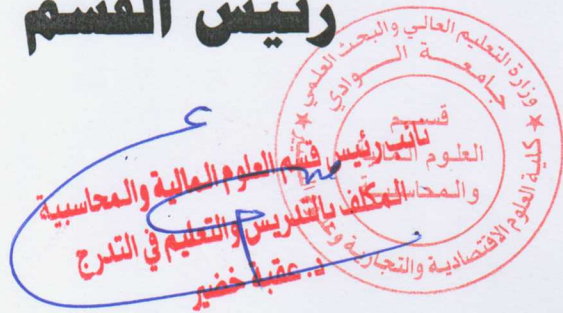 رئيس القسم
وزارة التعليم العالي والبحث العلمي
جامعة الوادي
كلية العلوم الاقتصادية والتجارية
قسم
العلوم المالية
والمحاسبية
نائب رئيس قسم العلوم المالية والمحاسبية
المكلف بالتدريس والتعليم في التدرج
د. عقبة خضير